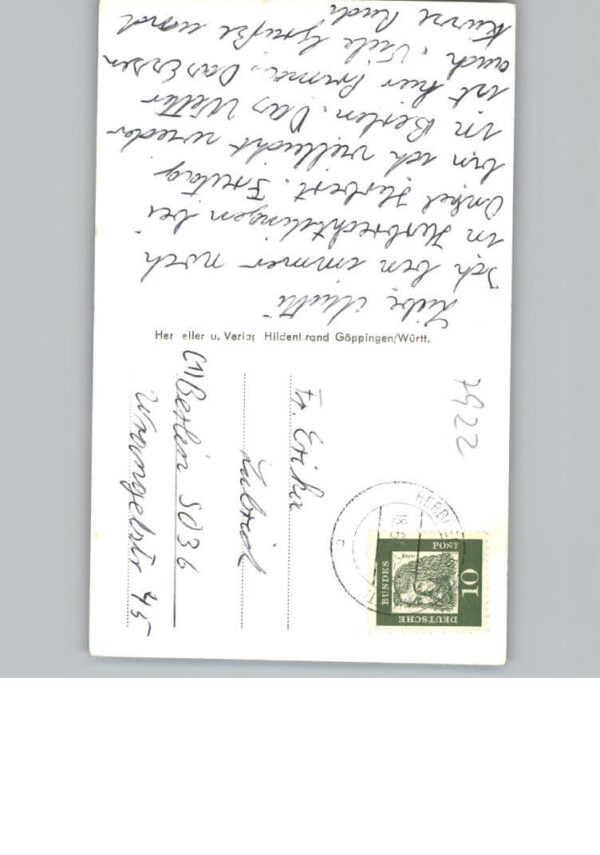 Liebe Mutti
Ich bin immer noch
in Herbrechtingen bei
Onkel Herbert. Freitag
bin ich vielleicht wieder
in Berlin. Das Wetter
ist hier prima. Das Essen
auch. Viele Grüße und
Rudi
Her eller u. Verlag Hildenbrand Göppingen/Württ.
7922
DEUTSCHE
BUNDES
POST
10
Fr. Erika
(1) Berlin SO 36
Wrangelstr 45